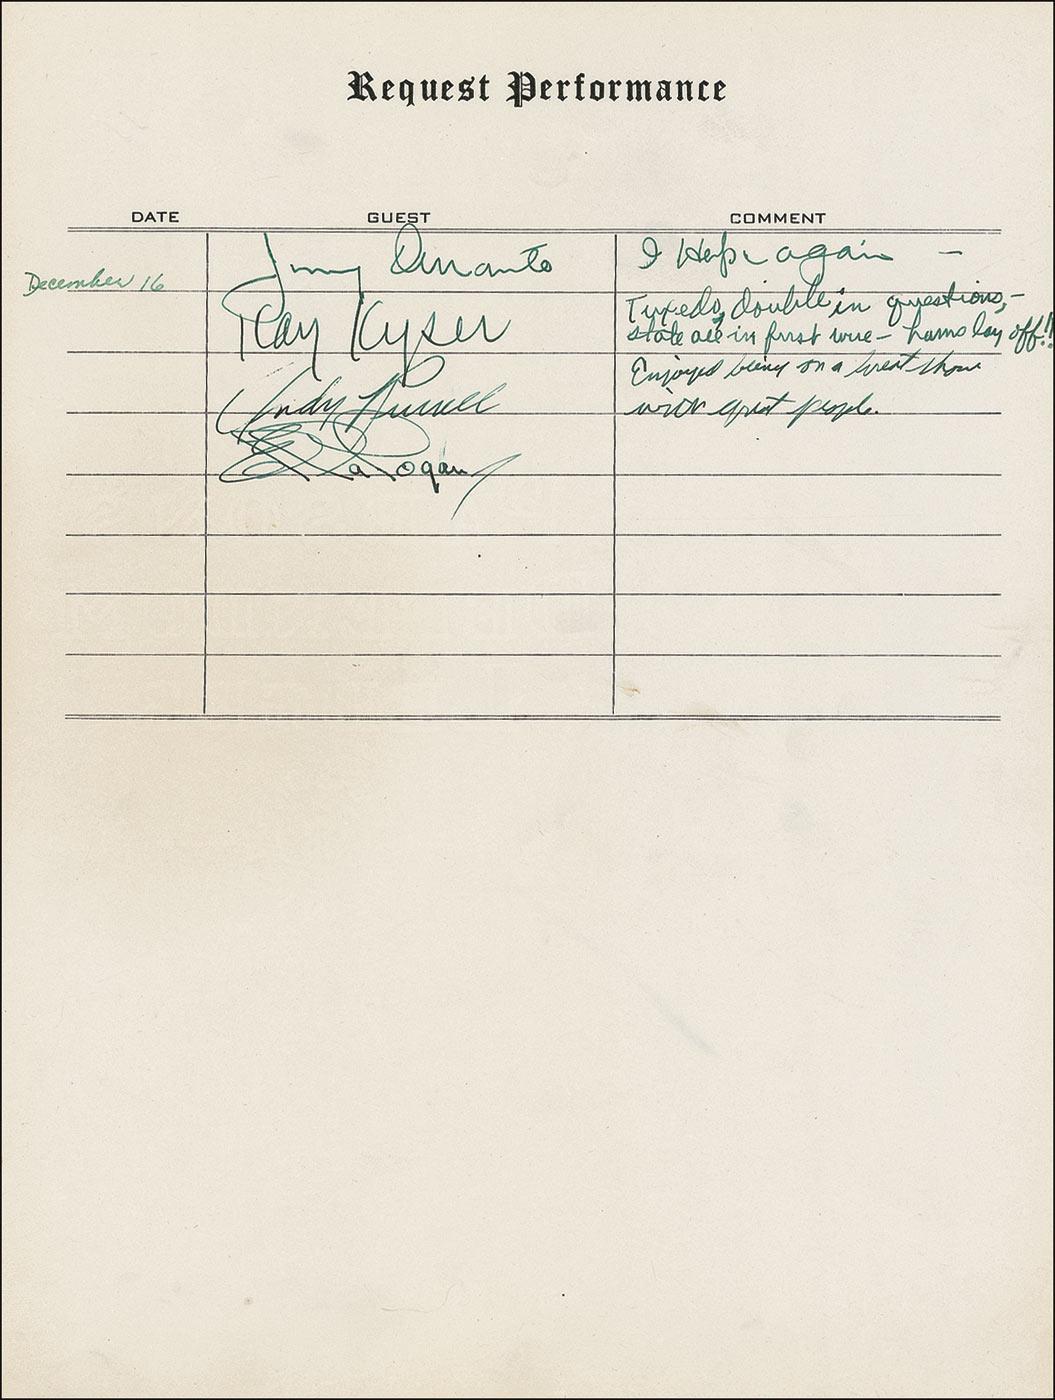 Request Performance
DATE GUEST COMMENT
December 16
Jimmy Durante I Hope again —
Kay Kyser Tuxedo, double in questions, —
state all in first wire — hams lay off!!
Andy Russell Enjoyed being on a great show
with great people.
Ella Logan